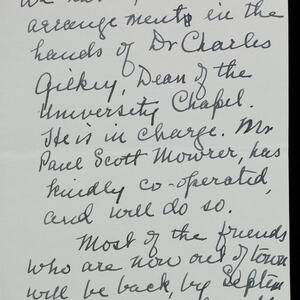 arrangements in the
hands of Dr Charles
Gilkey, Dean of the
University Chapel.
He is in charge. Mr
Paul Scott Mowrer, has
kindly co-operated,
and will do so.
Most of the friends
who are now out of town
will be back, by Septem